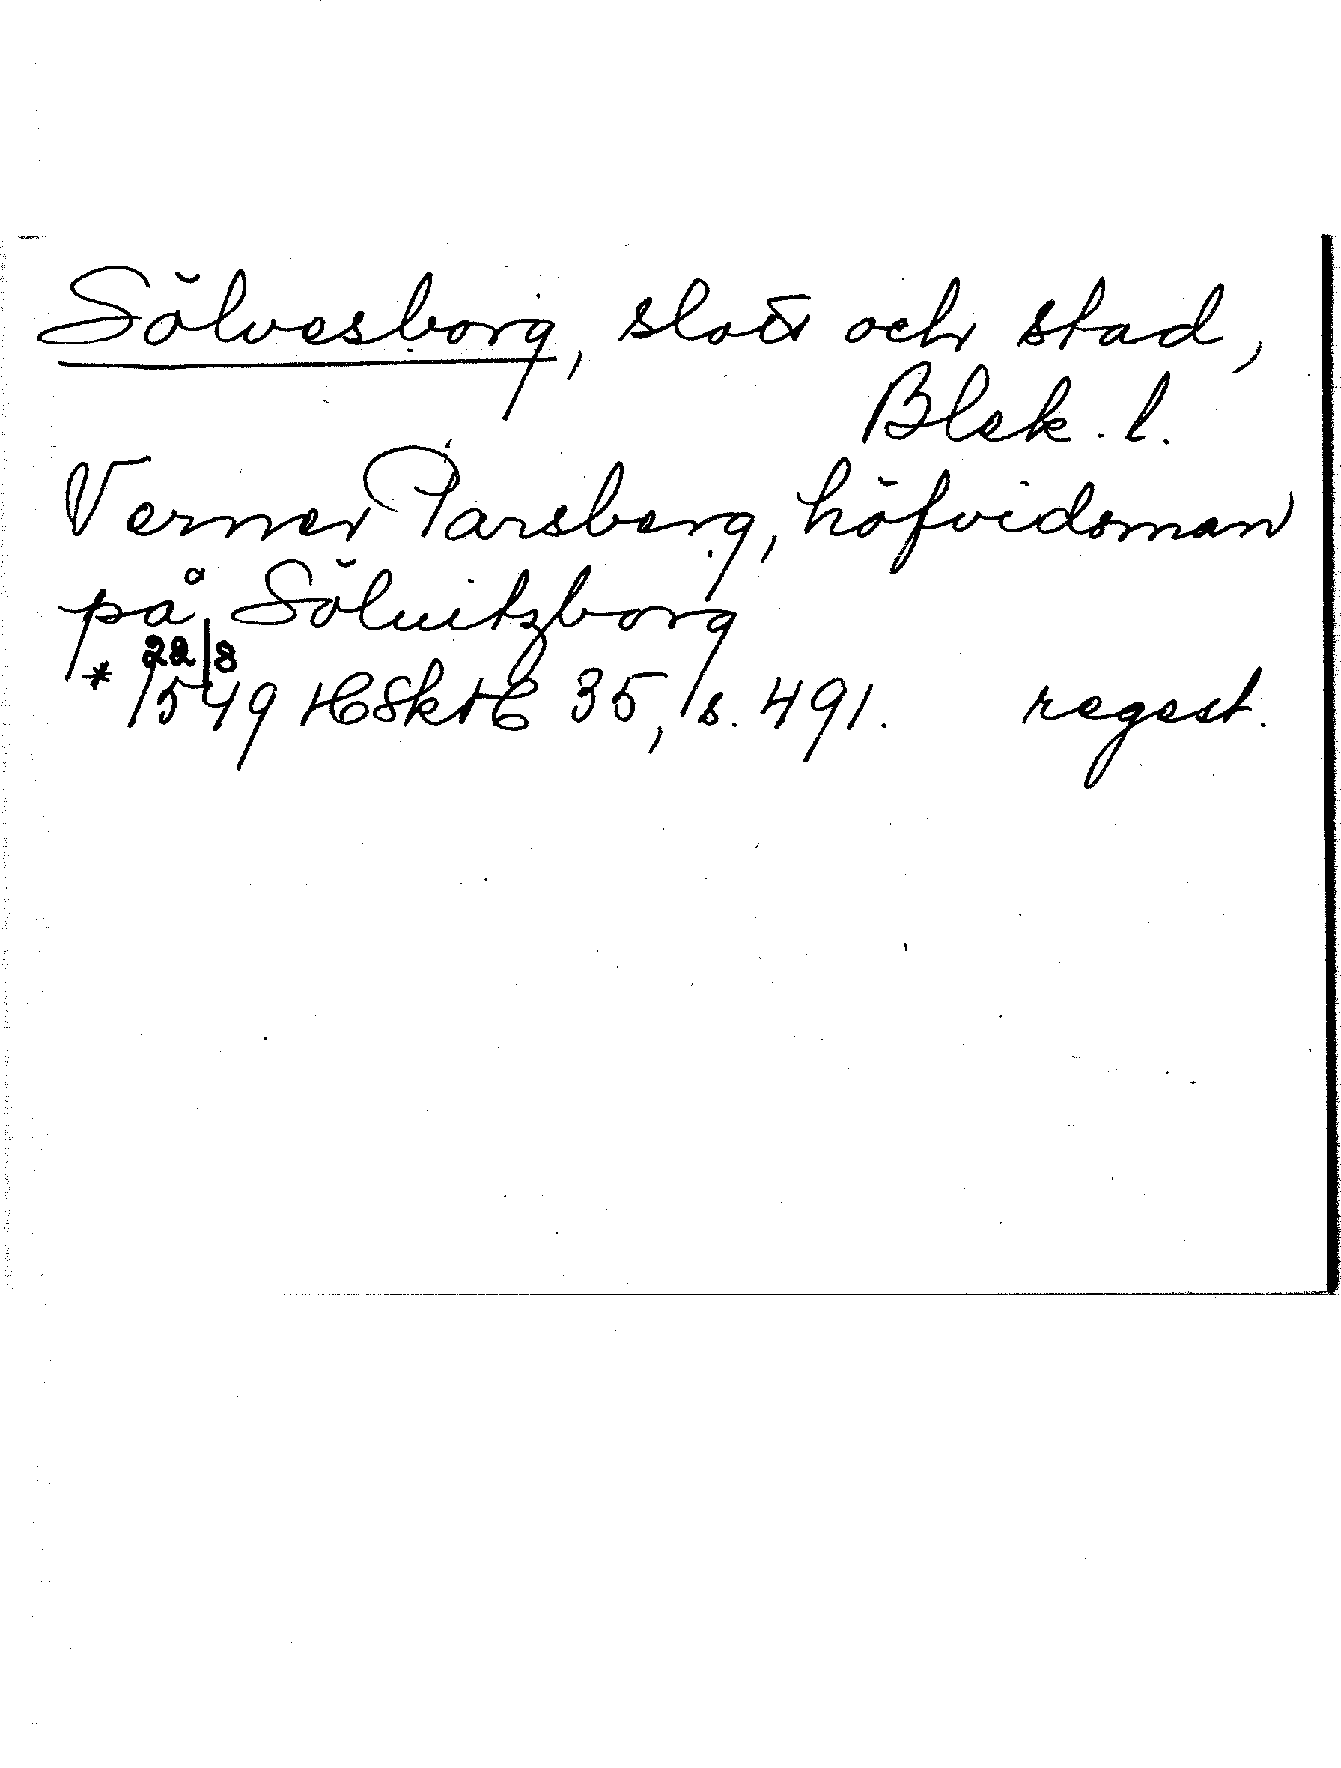 Sölvesborg, slott och stad,
Blek. l.
Verner Parsberg, höfvidsman
på Söluitzborg
* 22/8
1549 HSkH 35, s. 491. regest.